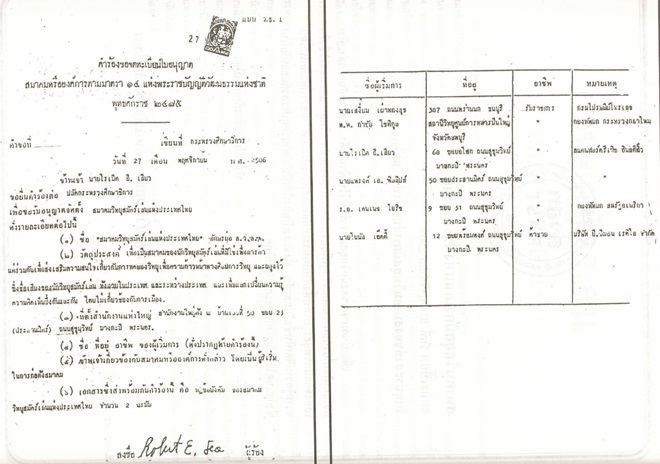 แบบ ว.ธ. 1
27
คำร้องขอจดทะเบียนใบอนุญาต
สมาคมหรือองค์การตามมาตรา ๑๔ แห่งพระราชบัญญัติวัฒนธรรมแห่งชาติ
พุทธศักราช ๒๔๘๕
คำขอที่
เขียนที่ กระทรวงศึกษาธิการ
วันที่ 27 เดือน พฤศจิกายน พ.ศ. 2506
ข้าพเจ้า นายโรเบิต อี. เลียว
ขอยื่นคำร้องต่อ ปลัดกระทรวงศึกษาธิการ
เพื่อขอรับอนุญาตจัดตั้ง สมาคมวิทยุสมัครเล่นแห่งประเทศไทย
ดั่งรายละเอียดต่อไปนี้
(๑) ชื่อ "สมาคมวิทยุสมัครเล่นแห่งประเทศไทย"
(๒) วัตถุประสงค์ เพื่อเป็นสมาคมของนักวิทยุสมัครเล่น
ความคิดเห็นซึ่งกันและกัน โดยไม่เกี่ยวข้องกับการเมือง.
(๓) ที่ตั้งสำนักงานแห่งใหญ่ สำนักงานใหญ่ตั้ง ณ บ้านเลขที่ 50 ซอย 23
(ประสานมิตร) ถนนสุขุมวิทย์ บางกะปิ พระนคร.
(๔) ชื่อ ที่อยู่ อาชีพ ของผู้เริ่มการ (ดั่งปรากฏท้ายคำร้องนี้)
(๕) เข้าพเจ้าเกี่ยวข้องกับสมาคมหรือองค์การดั่งกล่าว โดยเป็นผู้ริเริ่ม
ในการก่อตั้งสมาคม
(๖) เอกสารซึ่งส่งพร้อมกับคำร้องนี้ คือ ข้อบังคับ ของสมาคม
วิทยุสมัครเล่นแห่งประเทศไทย จำนวน 2 ฉะบับ
ลงชื่อ Robert E. Leo ผู้ร้อง
ชื่อผู้เริ่มการ ที่อยู่ อาชีพ หมายเหตุ
นายเสงี่ยม เผ่าทองสุข 307 ถนนพรานนก ธนบุรี รับราชการ กรมไปรษณีย์โทรเลข
พ.ท. กำชัย โชติกุล สถานีวิทยุศูนย์การทหารปืนใหญ่ " กองทัพบก กระทรวงกลาโหม
จังหวัดลพบุรี
นายโรเบิต อี. เลียว 60 ซอยอโศก ถนนสุขุมวิทย์ " สแตนฟอร์ดรีเซิช อินสติติ้ว
บางกะปิ พระนคร
นายแฟรงค์ เอ. ฟิลลิปส์ 50 ซอยประสานมิตร ถนนสุขุมวิทย์ "
บางกะปิ พระนคร
ร.อ. เคนเนธ 9 ซอย 31 ถนนสุขุมวิทย์ " กองทัพบก สหรัฐอเมริกา
บางกะปิ พระนคร
12 ซอยพร้อมพงศ์ ถนนสุขุมวิทย์ ค้าขาย
บางกะปิ พระนคร